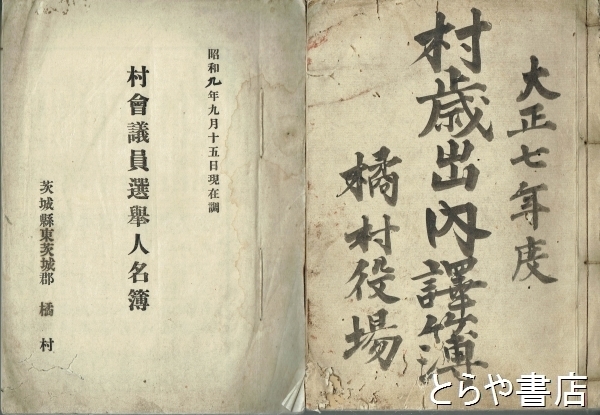 昭和九年九月十五日現在調
村會議員選擧人名簿
茨城縣東茨城郡 橘 村
大正七年度
村歳出内譯簿
橘村役場
とらや書店